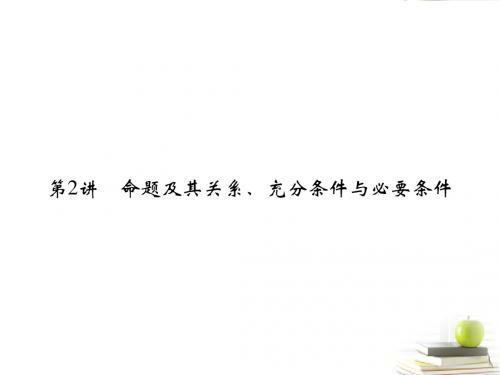 第2讲　命题及其关系、充分条件与必要条件